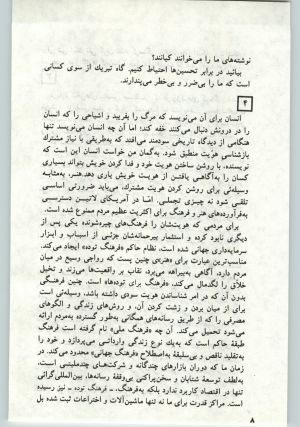 نوشته‌های ما را می‌خوانند کیانند؟
بیائید در برابر تحسین‌ها احتیاط کنیم. گاه تبریك از سوی کسانی
است که ما را بی‌ضرر و بی‌خطر می‌پندارند.
۴
انسان برای آن می‌نویسد که مرگ را بفریبد و اشباحی را که انسان
را در درونش دنبال می‌کنند خفه کند؛ اما آن چه انسان می‌نویسد تنها
هنگامی از دیدگاه تاریخی سودمند می‌افتد که به‌طریقی با نیاز مشترك
بازشناسی هویت منطبق شود. به‌گمان من خواست انسان این است که
نویسنده، با روشن ساختن هویت خود و فدا کردن خویش بتواند بسیاری
کسان را به‌آگاهی یافتن از هویت خویش یاری دهد. هنر، به‌مثابه
وسیله‌ئی برای روشن کردن هویت مشترك، می‌باید ضرورتی اساسی
تلقی شود نه چیزی تجملی. امّا در آمریکای لاتین دسترسی
به‌فرآورده‌های هنر و فرهنگ برای اکثریت عظیم مردم ممنوع شده است.
برای مردمی که هویت‌شان را فرهنگ‌های چیره‌شونده یکی پس از
دیگری نابود کرده و استثمار بیرحمانه‌شان جزئی از اسباب و ابزار
سرمایه‌داری جهانی شده است، نظام حاکم «فرهنگ توده» ایجاد می‌کند.
مناسب‌ترین عبارت برای «هنر»ی چنین پست که رواجی وسیع در میان
مردم دارد، آگاهی به‌بیراهه می‌برد، نقاب بر واقعیت‌ها می‌زند و تخیل
خلاق را لگدمال می‌کند، «فرهنگ برای توده‌ها» است. چنین فرهنگی
بدون آن که در امر شناساندن هویت سودی داشته باشد، وسیله‌ئی است
برای از میان بردن و زشت کردن آن، و روش‌های زندگی و الگوهای
مصرفی را که از طریق رسانه‌های همگانی به‌طور گسترده به‌مردم ارائه
می‌شود تحمیل می‌کند. آن چه «فرهنگ ملی» نام گرفته است فرهنگ
طبقهٔ حاکم است که به‌یك نوع زندگی وارداتی می‌پردازد و خود را
به‌تقلید ناقص و بی‌سلیقهٔ به‌اصطلاح «فرهنگ جهانی» محدود می‌کند. در
زمان ما که دوران بازارهای چندگانه و شرکت‌های چندملیتی است،
به‌لطف توسعهٔ شتابان و سخن‌پراکنی بی‌وقفهٔ رسانه‌ها، بین‌المللی‌گرائی
تنها در اقتصاد کاربرد ندارد بلکه به‌فرهنگ، ـ فرهنگ توده ـ نیز رسیده
است. مراکز قدرت برای ما نه تنها ماشین‌آلات و اختراعات ثبت شده بل
۸